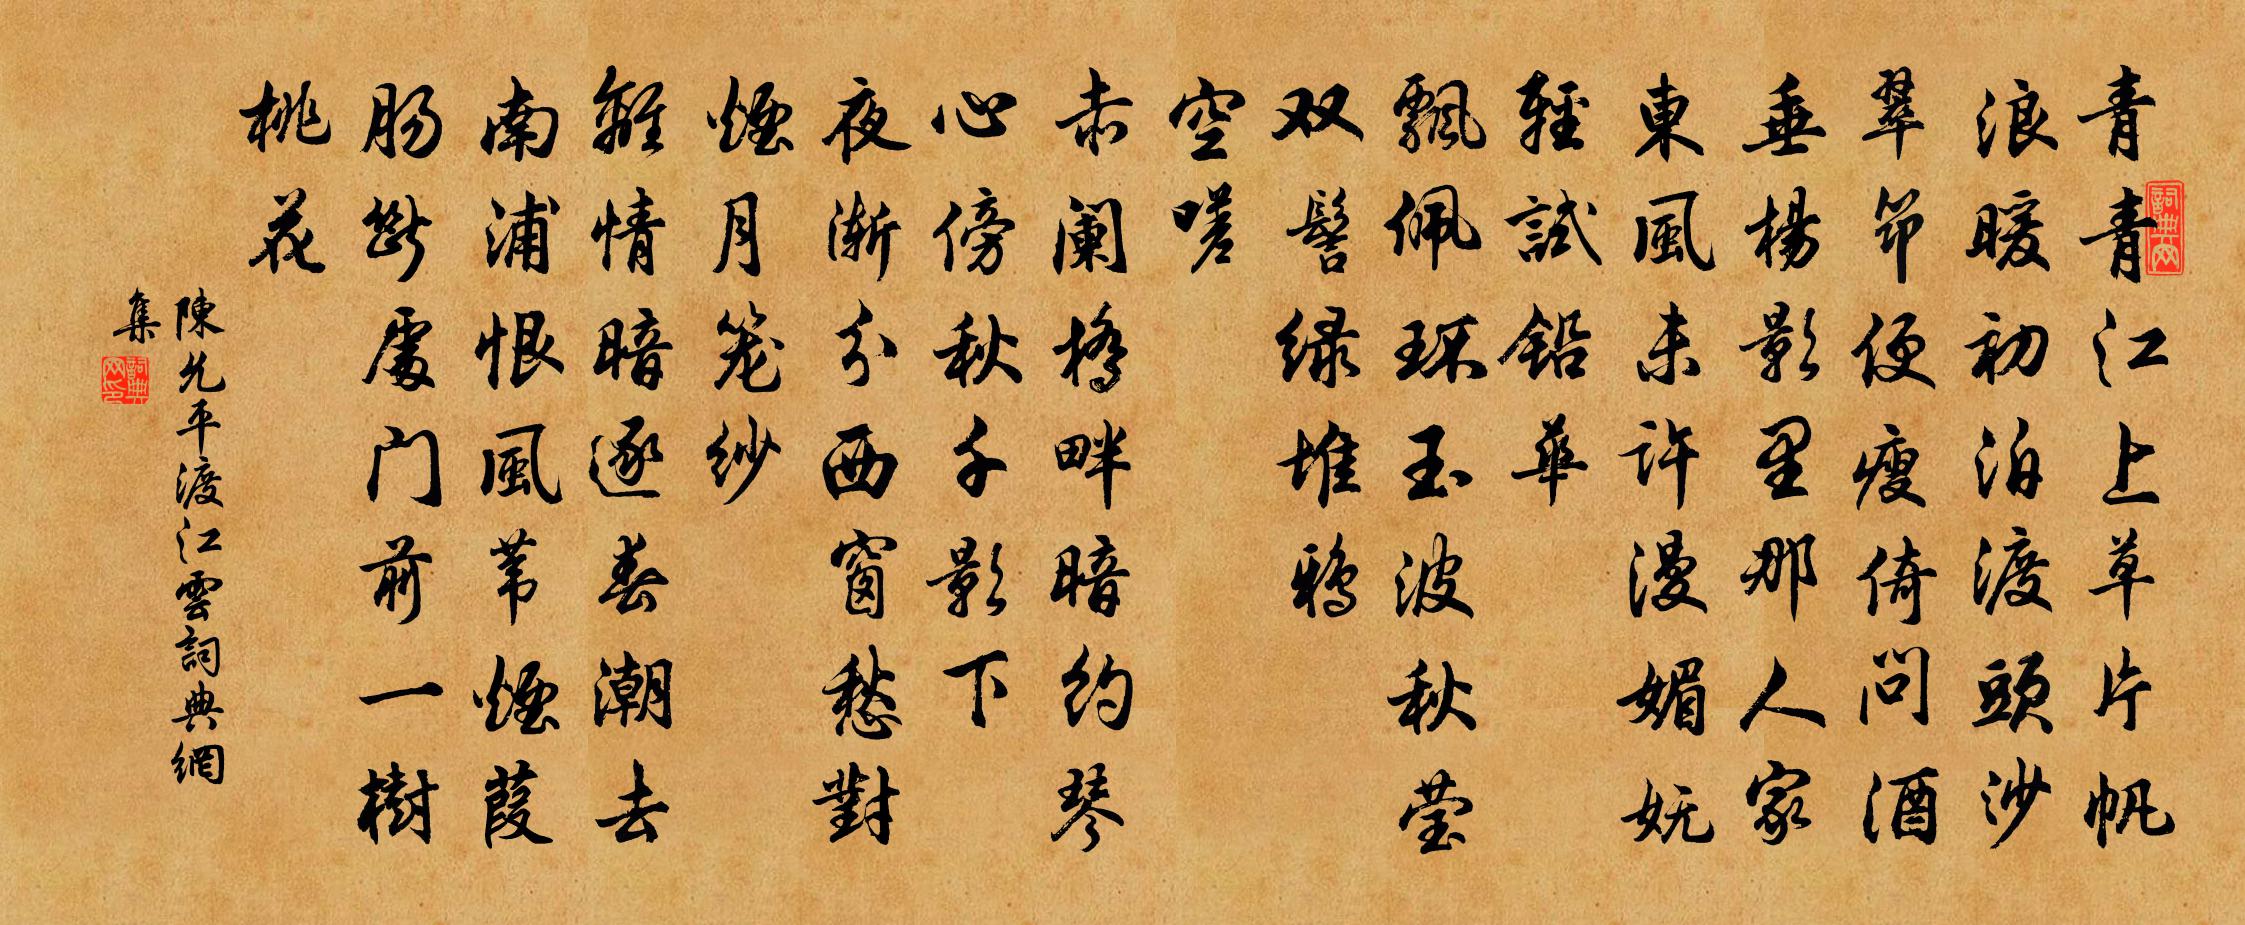 青青江上草片帆
浪暖初泊渡頭沙
翠筇便瘦倚問酒
垂楊影里那人家
東風未许漫媚妩
輕試鉛華
飄佩环玉波秋莹
双髻绿堆鸦
空嗟
赤阑橋畔暗约琴
心傍秋千影下
夜渐分西窗愁對
煙月笼纱
離情暗逐春潮去
南浦恨風苇煙葭
肠斷處门前一樹
桃花
陳允平渡江雲詞典網
集
詞典网
詞典网印